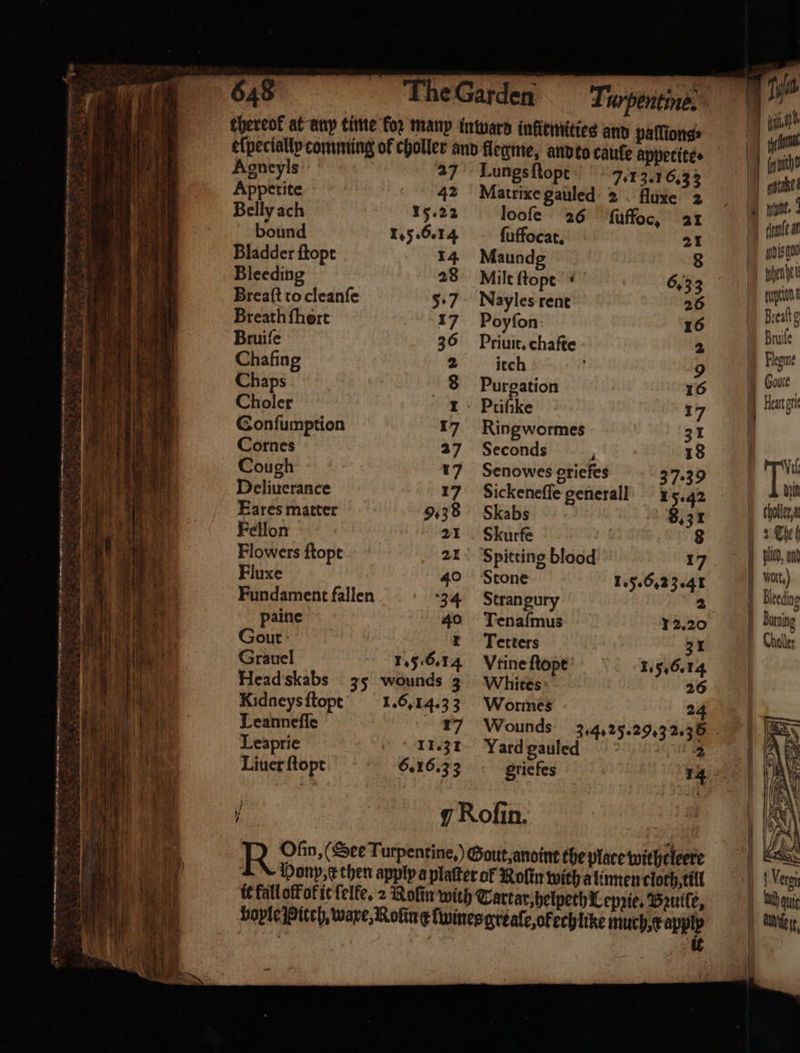 648 The Garden Turpentine.
thereof at any time foꝛ many inward infirmities and paſſions
eſpecially comming of choller and flegme, and to cauſe appetite.
Agneyls 27
Appetite 42
Belly ach 15.22
bound 1.5.6.14
Bladder ſtopt 14
Bleeding 28
Breaſt to cleanſe 5.7
Breath ſhort 17
Bruiſe 36
Chafing 2
Chaps 8
Choler 1
Conſumption 17
Cornes 27
Cough 17
Deliuerance 17
Eares matter 9.38
Fellon 21
Flowers ſtopt 21
Fluxe 40
Fundament fallen 34
paine 40
Gout 1
Grauel 1.5.6.14
Head skabs 35 wounds 3
Kidneys ſtopt 1.6,14.33
Leanneſſe 17
Leaprie 11.31
Liuer ſtopt 6.16.33
Lungs ſtopt 7.13.16,33
Matrixe gauled 2 . fluxe 2
looſe 26 ſuffoc, 21
ſuffocat, 21
Maundg 8
Milt ſtope 6,33
Nayles rent 26
Poyſon 16
Priuit. chafte 2
itch 9
Purgation 16
Ptiſike 17
Ringwormes 31
Seconds 18
Senowes griefes 37.39
Sickeneſſe generall 15.42
Skabs 8,31
Skurfe 8
Spitting blood 17
Stone 1.5.6,23.41
Strangury 2
Tenaſmus 12,20
Tetters 31
Vrine ſtopt 1.5,6.14
Whites 26
Wormes 24
Wounds 3.4,25.29,32.36
Yard gauled 2
griefes 14
¶ Roſin.
ROſin, (See Turpentine,) Gout, anoint the place with cleere
Hony, & then apply a plaſter of Roſin with a linnen cloth, till
it fall off of it ſelfe. 2 Roſin with Tartar, helpeth Lepꝛie. Bꝛuiſe,
boyle Pitch, waxe, Roſin & ſwines greaſe, of ech like much, & apply
it
Bruiſe
Flegme
Goute
2 The
Bleeding
Burning
Choller